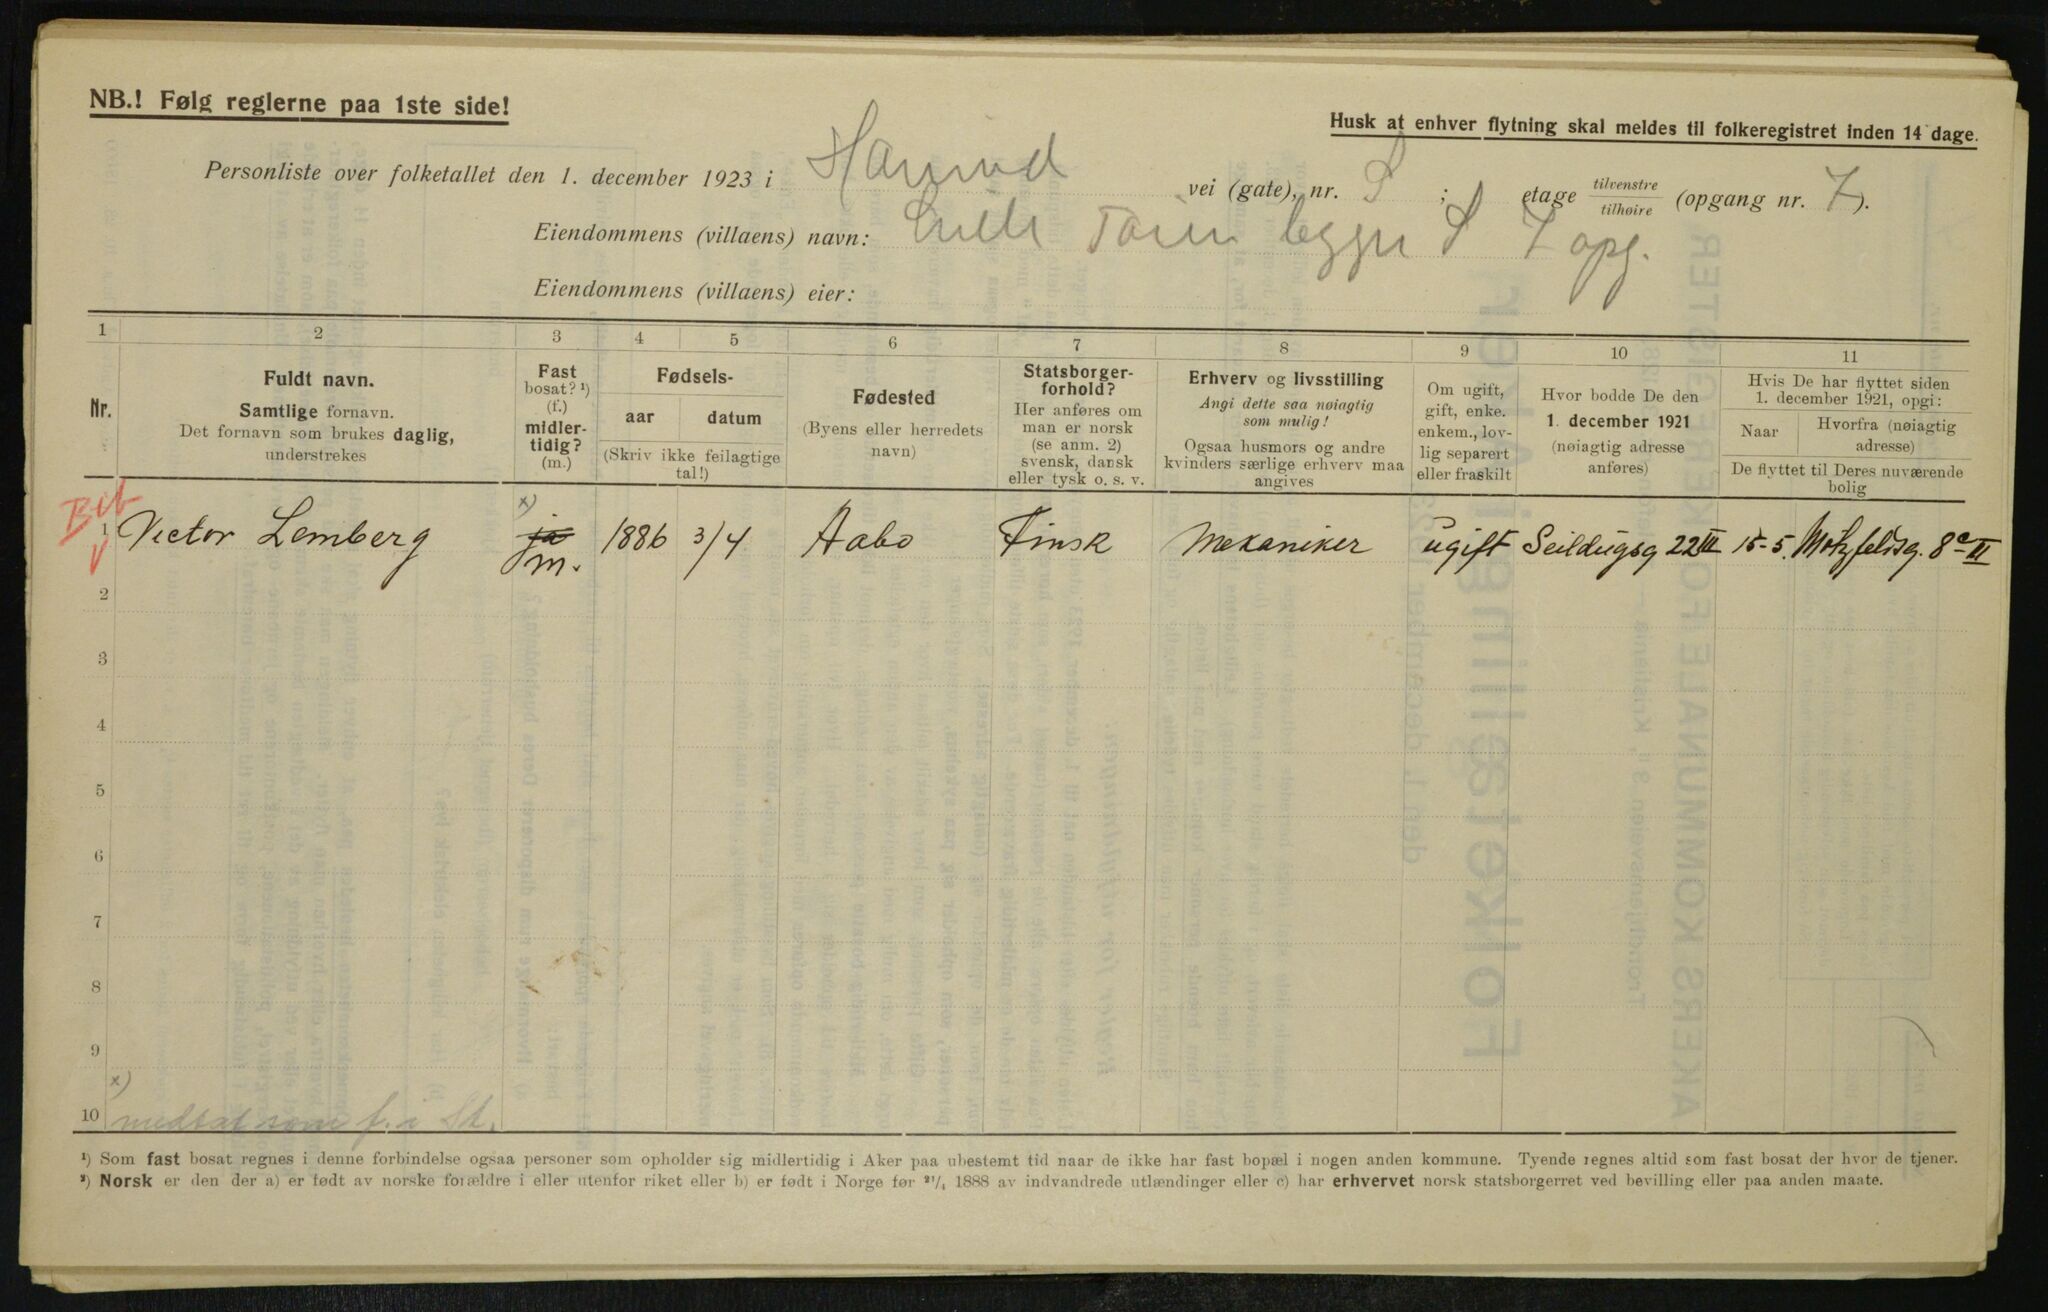 NB.! Følg reglerne paa 1ste side!
Husk at enhver flytning skal meldes til folkeregistret inden 14 dage.
Personliste over folketallet den 1. december 1923 i vei (gate), nr. S ; etage tilvenstre tilhøire (opgang nr. 7).
Eiendommens (villaens) navn: Lille Tøien S 7 opg.
Eiendommens (villaens) eier:
1 2 3 4 5 6 7 8 9 10 11
Nr.
Fuldt navn.
Samtlige fornavn.
Det fornavn som brukes daglig,
understrekes
Fast
bosat? ¹)
(f.)
midler-
tidig?
(m.)
Fødsels-
aar datum
(Skriv ikke feilagtige
tal!)
Fødested
(Byens eller herredets
navn)
Statsborger-
forhold?
Her anføres om
man er norsk
(se anm. 2)
svensk, dansk
eller tysk o. s. v.
Erhverv og livsstilling
Angi dette saa nøiagtig
som mulig!
Ogsaa husmors og andre
kvinders særlige erhverv maa
angives
Om ugift,
gift, enke.
enkem., lov-
lig separert
eller fraskilt
Hvor bodde De den
1. december 1921
(nøiagtig adresse
anføres)
Hvis De har flyttet siden
1. december 1921, opgi:
Naar
Hvorfra (nøiagtig
adresse)
De flyttet til Deres nuværende
bolig
x)
1 Victor Lemberg ja m. 1886 3/4 Aabo Finsk Mekaniker ugift Seildugsg 22 III 15-5. Motzfeldsg. 8c II
2
3
4
5
6
7
8
9
x)
10 medtat som f. i St.
¹) Som fast bosat regnes i denne forbindelse ogsaa personer som opholder sig midlertidig i Aker paa ubestemt tid naar de ikke har fast bopæl i nogen anden kommune. Tyende regnes altid som fast bosat der hvor de tjener.
²) Norsk er den der a) er født av norske forældre i eller utenfor riket eller b) er født i Norge før 21/4 1888 av indvandrede utlændinger eller c) har erhvervet norsk statsborgerret ved bevilling eller paa anden maate.